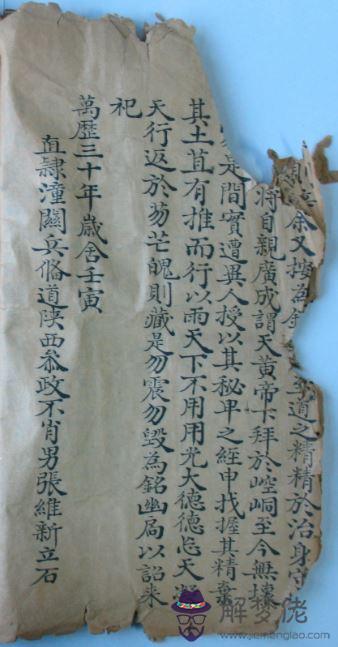 則真余又按為銘 至道之精精於治身守
將自親廣成謂天黃帝下拜於崆峒至今無壤
是間實遭異人授以其秘畀之經申找握其精棄
其土苴有推而行以雨天下不用用光大德德忘天
天行返於芴芒魄則藏是勿震勿毀為銘幽局以詔来
祀
萬歷三十年歲舍壬寅
直隸潼關兵俻道陝西叅政不肖男張維新立石
解夢佬
www.jiemenglao.com